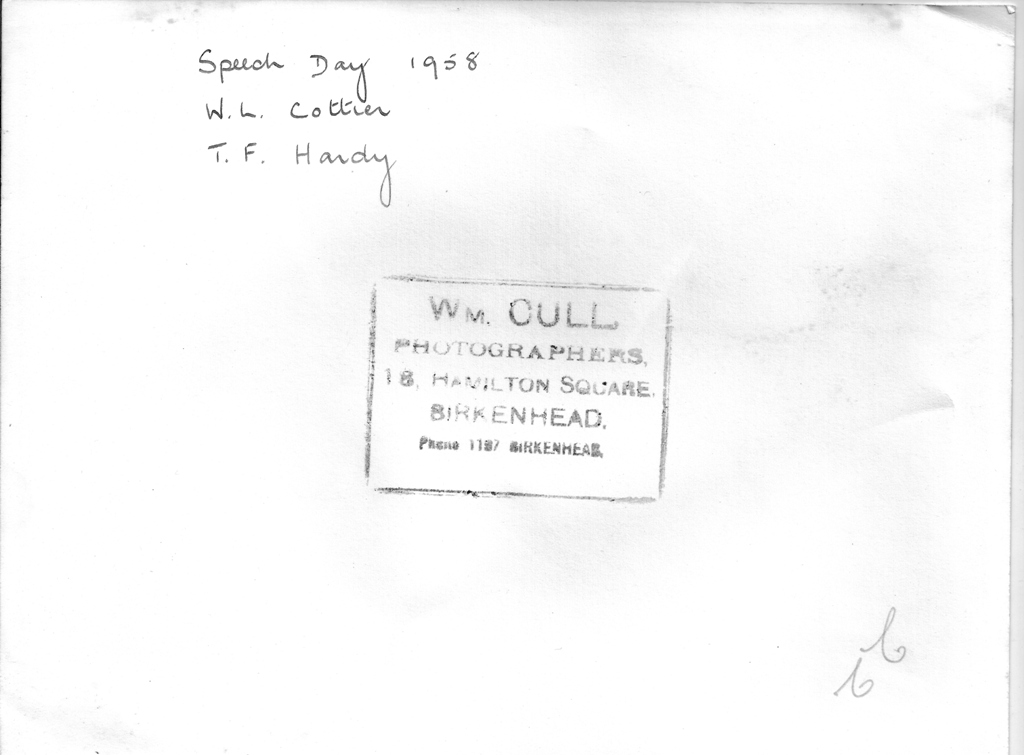 Speech Day 1958
W.L. Cottier
T. F. Hardy
WM. CULL
PHOTOGRAPHERS,
18, HAMILTON SQUARE,
BIRKENHEAD,
Phone 1197 BIRKENHEAD.